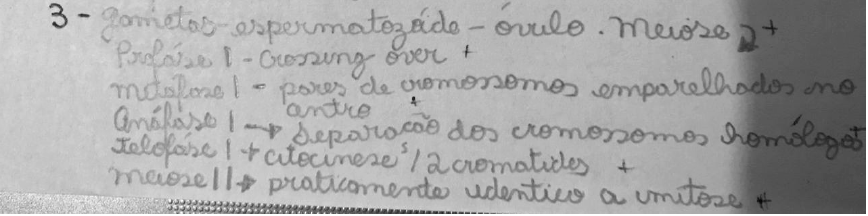 3 - gametas - espermatozóide - óvulo. Meiose 2+
Profáse 1 - Crossing over +
metáfase 1 - pares de cromossomos emparelhados no
antro +
Anáfáse 1 → Separação dos cromossomos homólogos+
telofáse 1 + citocinese s/2 cromatides +
meiose 11→ praticamente identico a mitose +